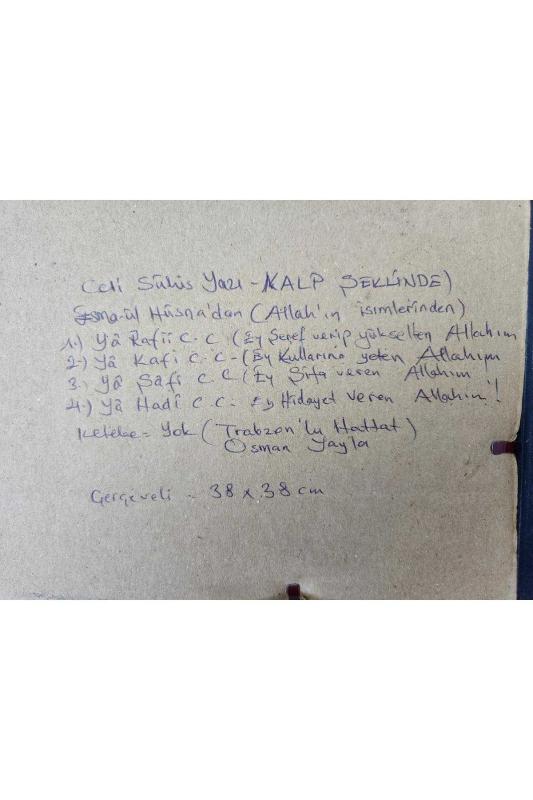 Celi Sülüs Yazı - KALP ŞEKLİNDE)
Esma-ül Hüsna'dan (Allah'ın isimlerinden)
1-) Yâ Rafii C.C. (Ey Şeref verip yükselten Allahım
2-) Yâ Kafi C.C - (Ey Kullarına yeten Allahım
3-) Yâ Şafi C.C (Ey Şifa veren Allahım
4-) Yâ Hadî C.C. - Ey Hidayet veren Allahım!
Ketebe = Yok (Trabzon'lu Hattat)
Osman Yayla
Çerçeveli - 38 x 38 cm